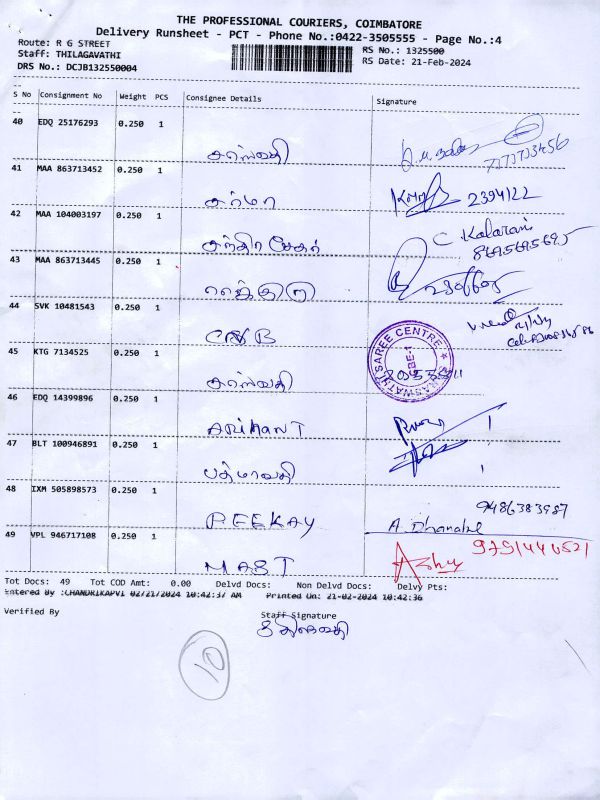 THE PROFESSIONAL COURIERS, COIMBATORE
Delivery Runsheet - PCT - Phone No.:0422-3505555 - Page No.:4
Route: R G STREET
RS No.: 1325500
Staff: THILAGAVATHI
RS Date: 21-Feb-2024
DRS No.: DCJB132550004
S No Consignment No Weight PCS Consignee Details Signature
40 EDQ 25176293 0.250 1
சரஸ்வதி
7373733456
41 MAA 863713452 0.250 1
சர்மா 2394122
42 MAA 104003197 0.250 1
சந்திர சேகர் C Kalarani
8695695695
43 MAA 863713445 0.250 1
44 SVK 10481543 0.250 1
CSB
SARASWATHY SAREE CENTRE
CBE-1
45 KTG 7134525 0.250 1
சரஸ்வதி
46 EDQ 14399896 0.250 1
ARIHANT
47 BLT 100946891 0.250 1
பத்மாவதி
48 IXM 505898573 0.250 1
9486383987
PEEKAY A. Dhanabal
49 VPL 946717108 0.250 1
9751440521
MAST
Tot Docs: 49 Tot COD Amt: 0.00 Delvd Docs: Non Delvd Docs: Delvy Pts:
Entered By :CHANDRIKAPVI 02/21/2024 10:42:37 AM Printed On: 21-02-2024 10:42:36
Verified By
Staff Signature
திலகவதி
10